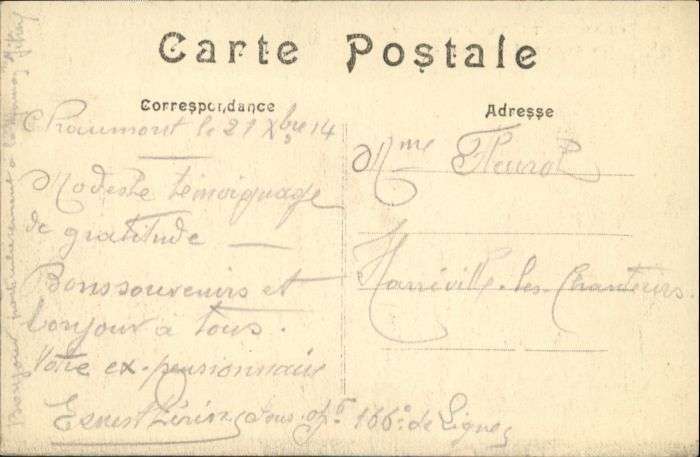 Carte Postale
Correspondance
Adresse
Chaumont le 21 Xbre 14
Modeste témoignage
de gratitude
Bons souvenirs et
bonjour à tous.
Votre ex-pensionnaire
Ernest Périn, sous offr 166e de Ligne
Mme Fleurot
Harréville-les-Chanteurs
Bonjour particulièrement à